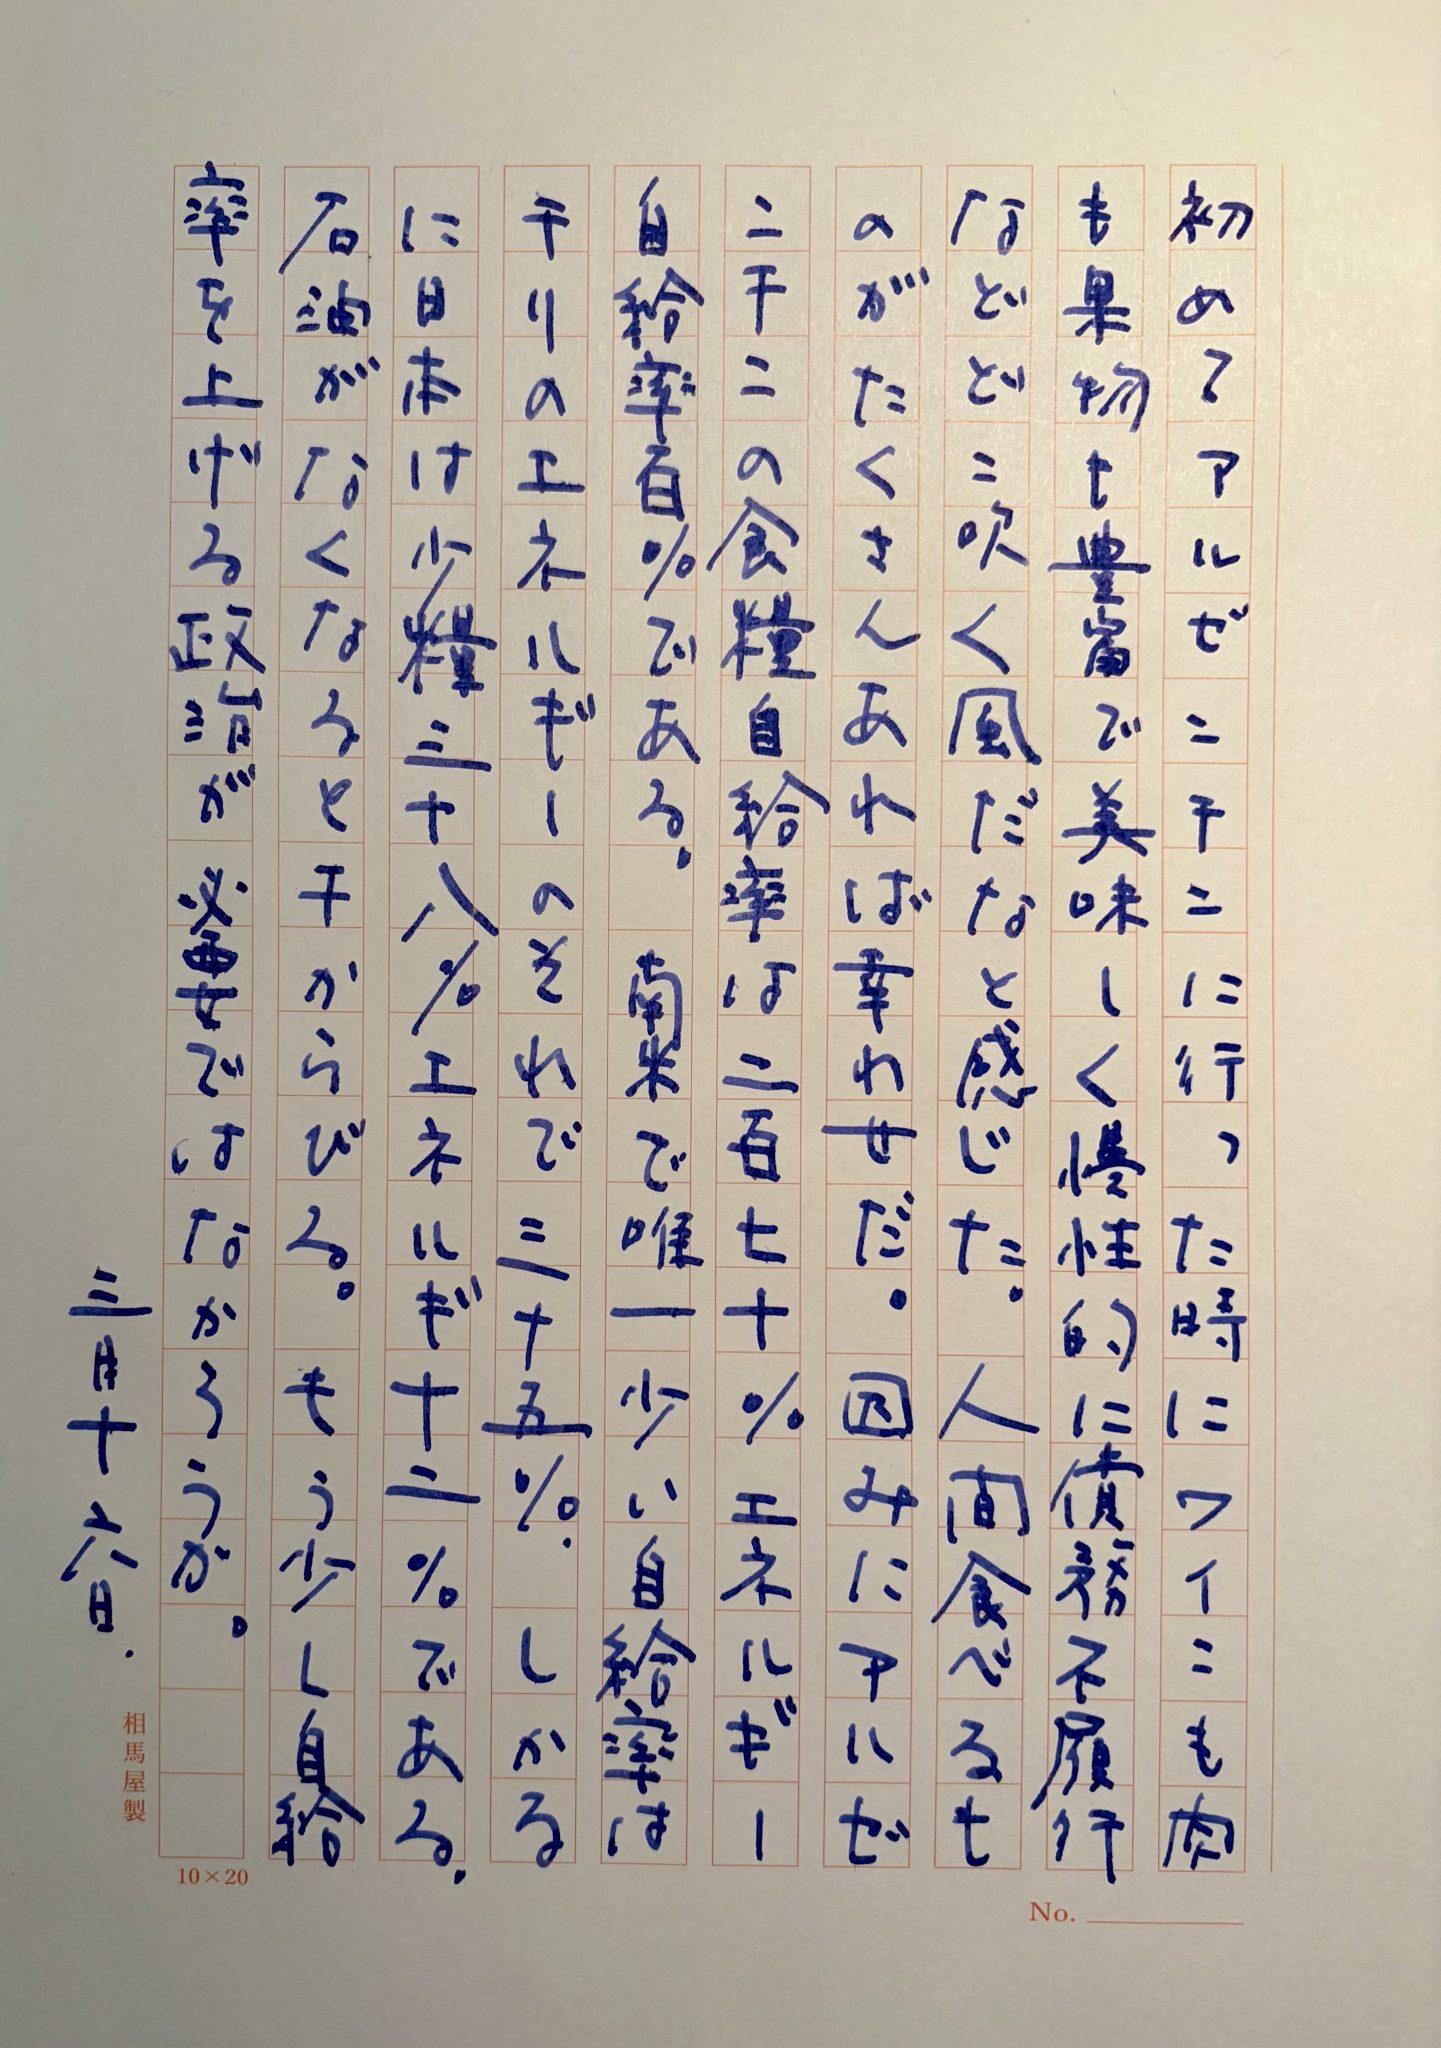 初めてアルゼンチンに行った時にワインも肉
も果物も豊富で美味しく慢性的に債務不履行
などどこ吹く風だなと感じた。人間食べるも
のがたくさんあれば幸わせだ。因みにアルゼ
ンチンの食糧自給率は二百七十%エネルギー
自給率百%である。南米で唯一少い自給率は
チリのエネルギーのそれで三十五%。しかる
に日本は少糧三十八%エネルギ十二%である。
石油がなくなると干からびる。もう少し自給
率を上げる政治が必要ではなかろうか。
三月十六日.
相馬屋製
10×20
No.